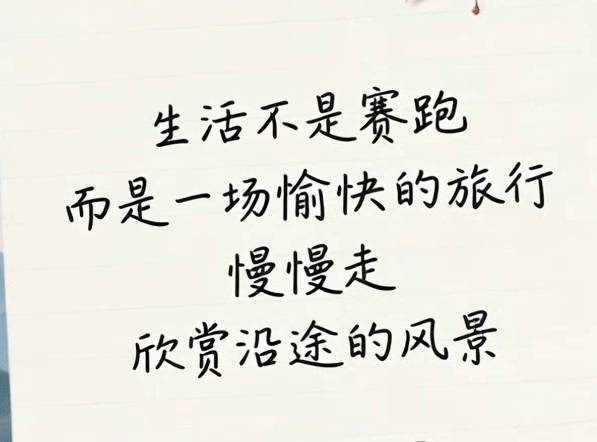 生活不是赛跑
而是一场愉快的旅行
慢慢走
欣赏沿途的风景